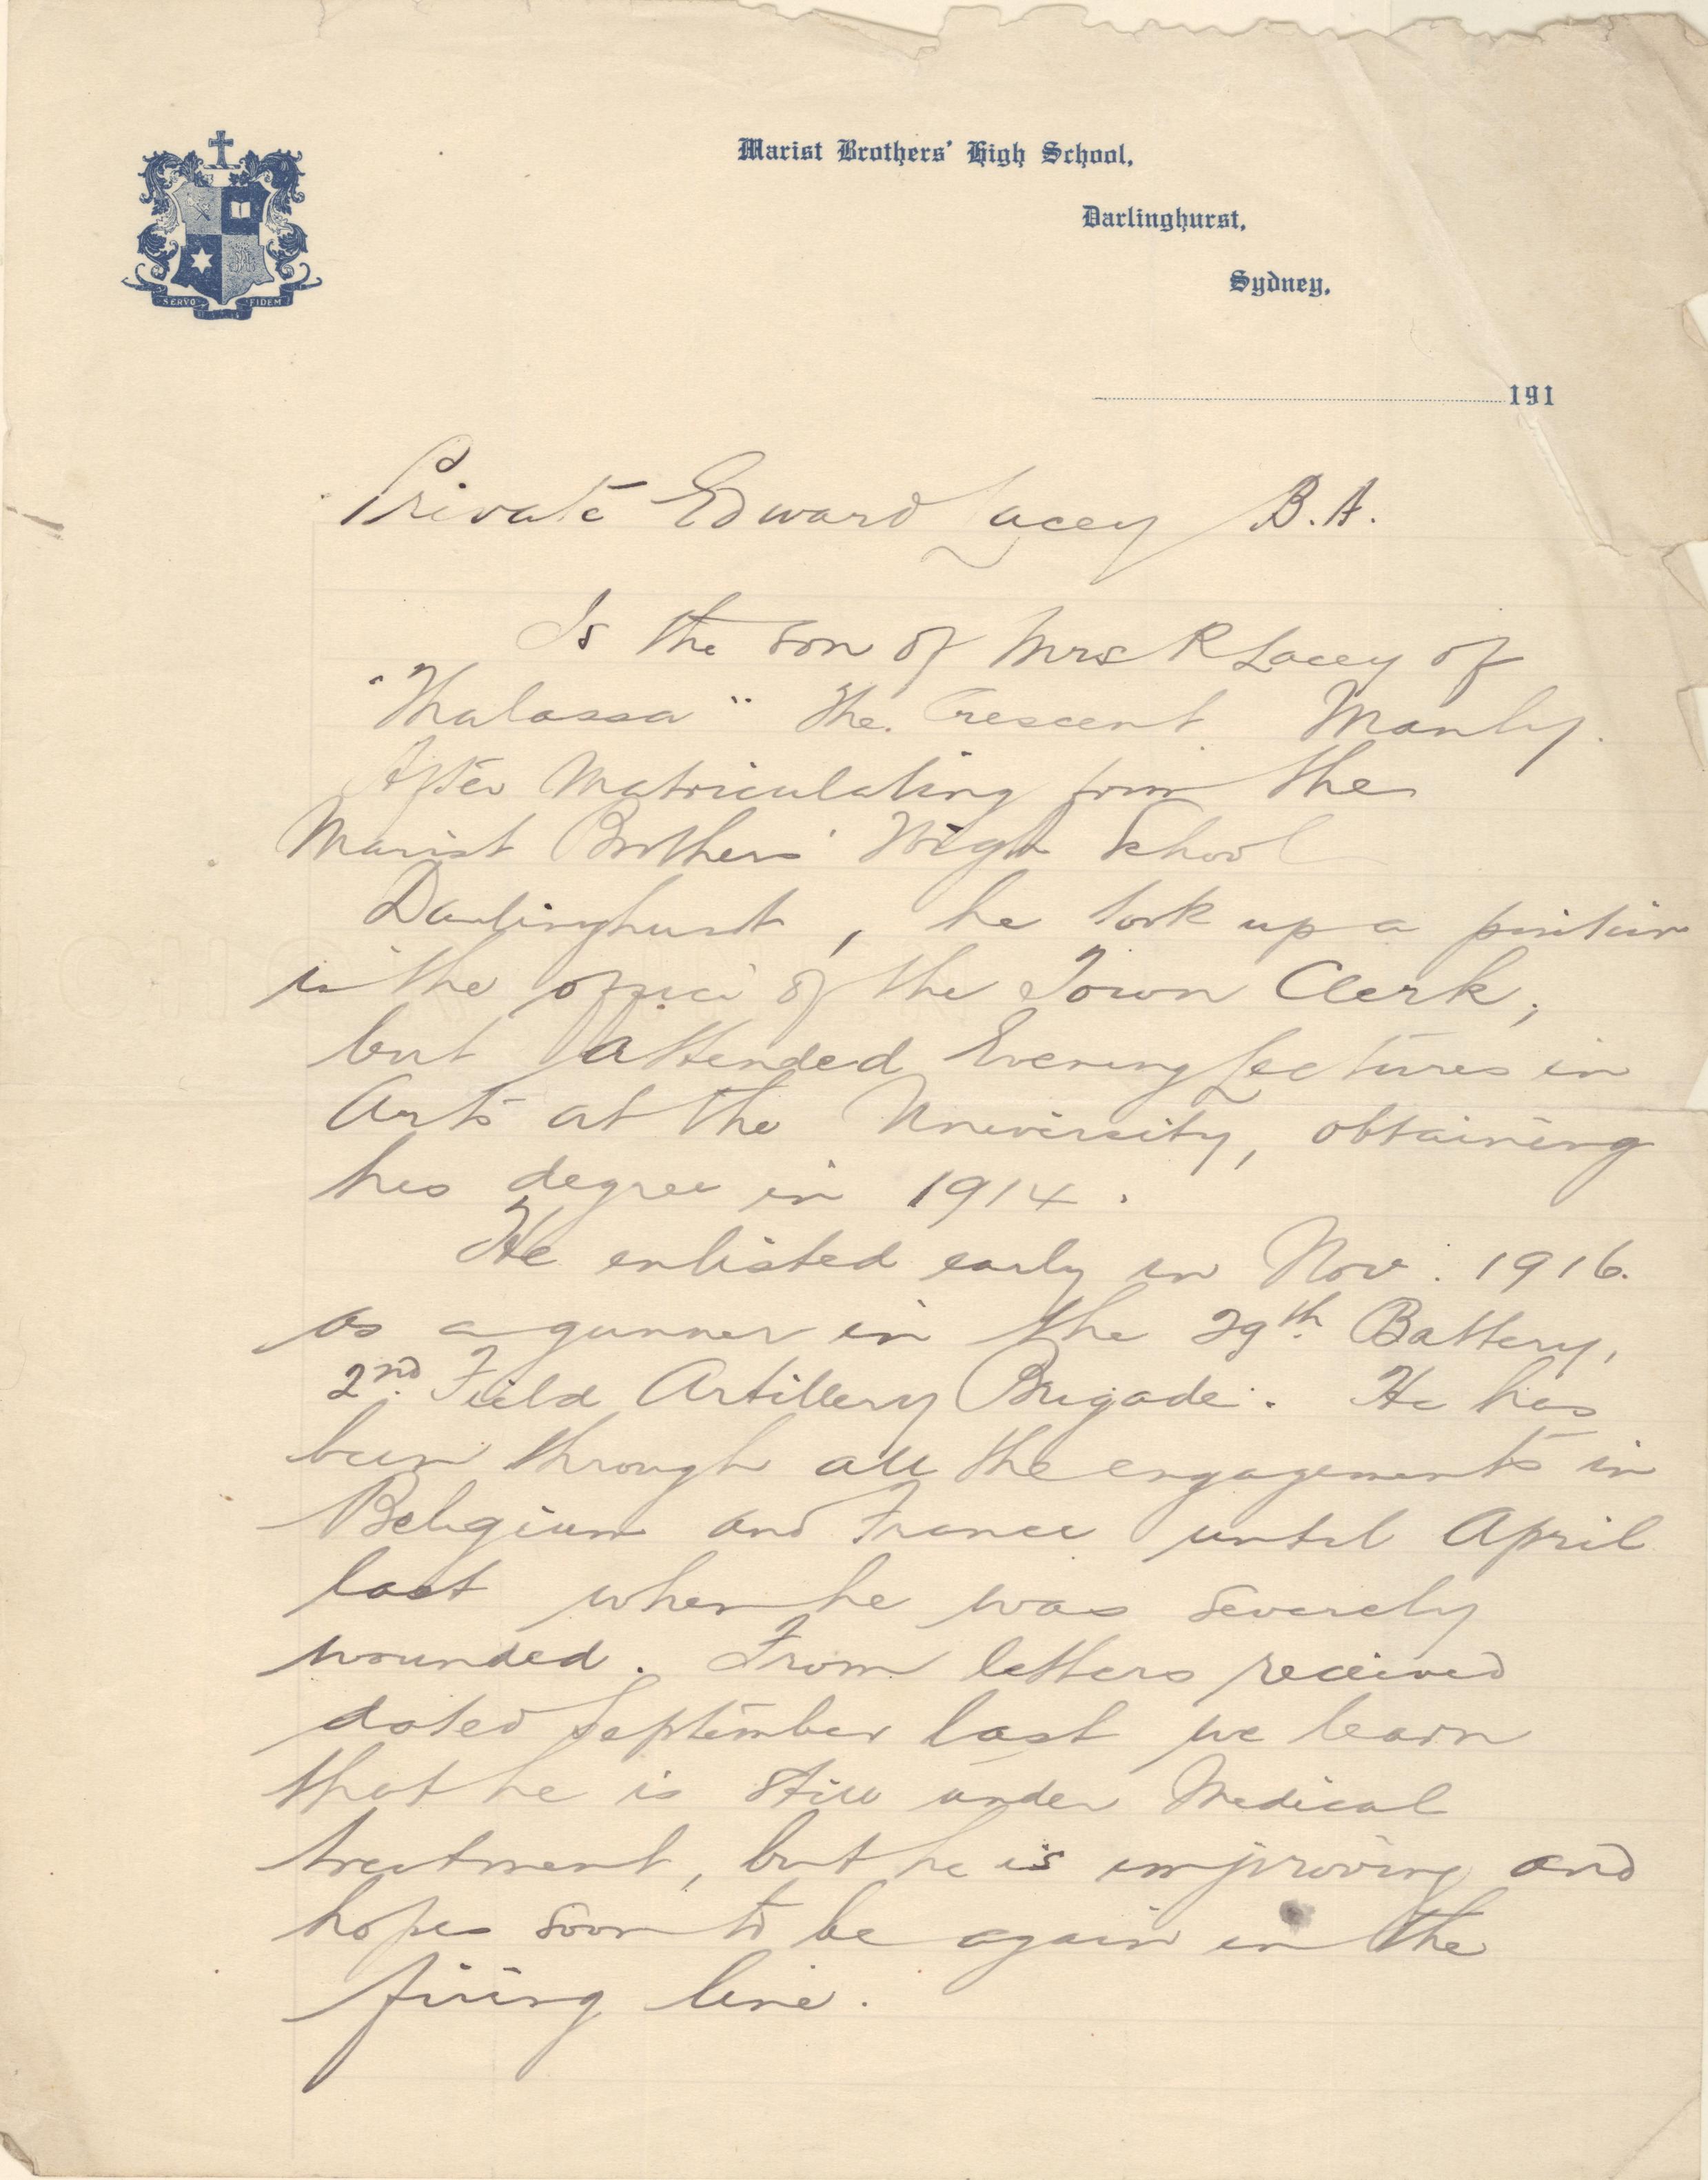 SERVO FIDEM
Marist Brothers' High School,
Darlinghurst,
Sydney,
191
Private Edward Lacey B.A.
Is the son of Mrs R Lacey of
"Thalassa" The Crescent Manly.
After Matriculating from the
Marist Brothers' High School
Darlinghurst, he took up a position
in the office of the Town Clerk,
but attended Evening Lectures in
Arts at the University, obtaining
his degree in 1914.
He enlisted early in Nov. 1916.
as a gunner in the 29th Battery,
2nd Field Artillery Brigade. He has
been through all the engagements in
Belgium and France until April
last when he was severely
wounded. From letters received
dated September last we learn
that he is still under Medical
treatment, but he is improving and
hopes soon to be again in the
firing line.